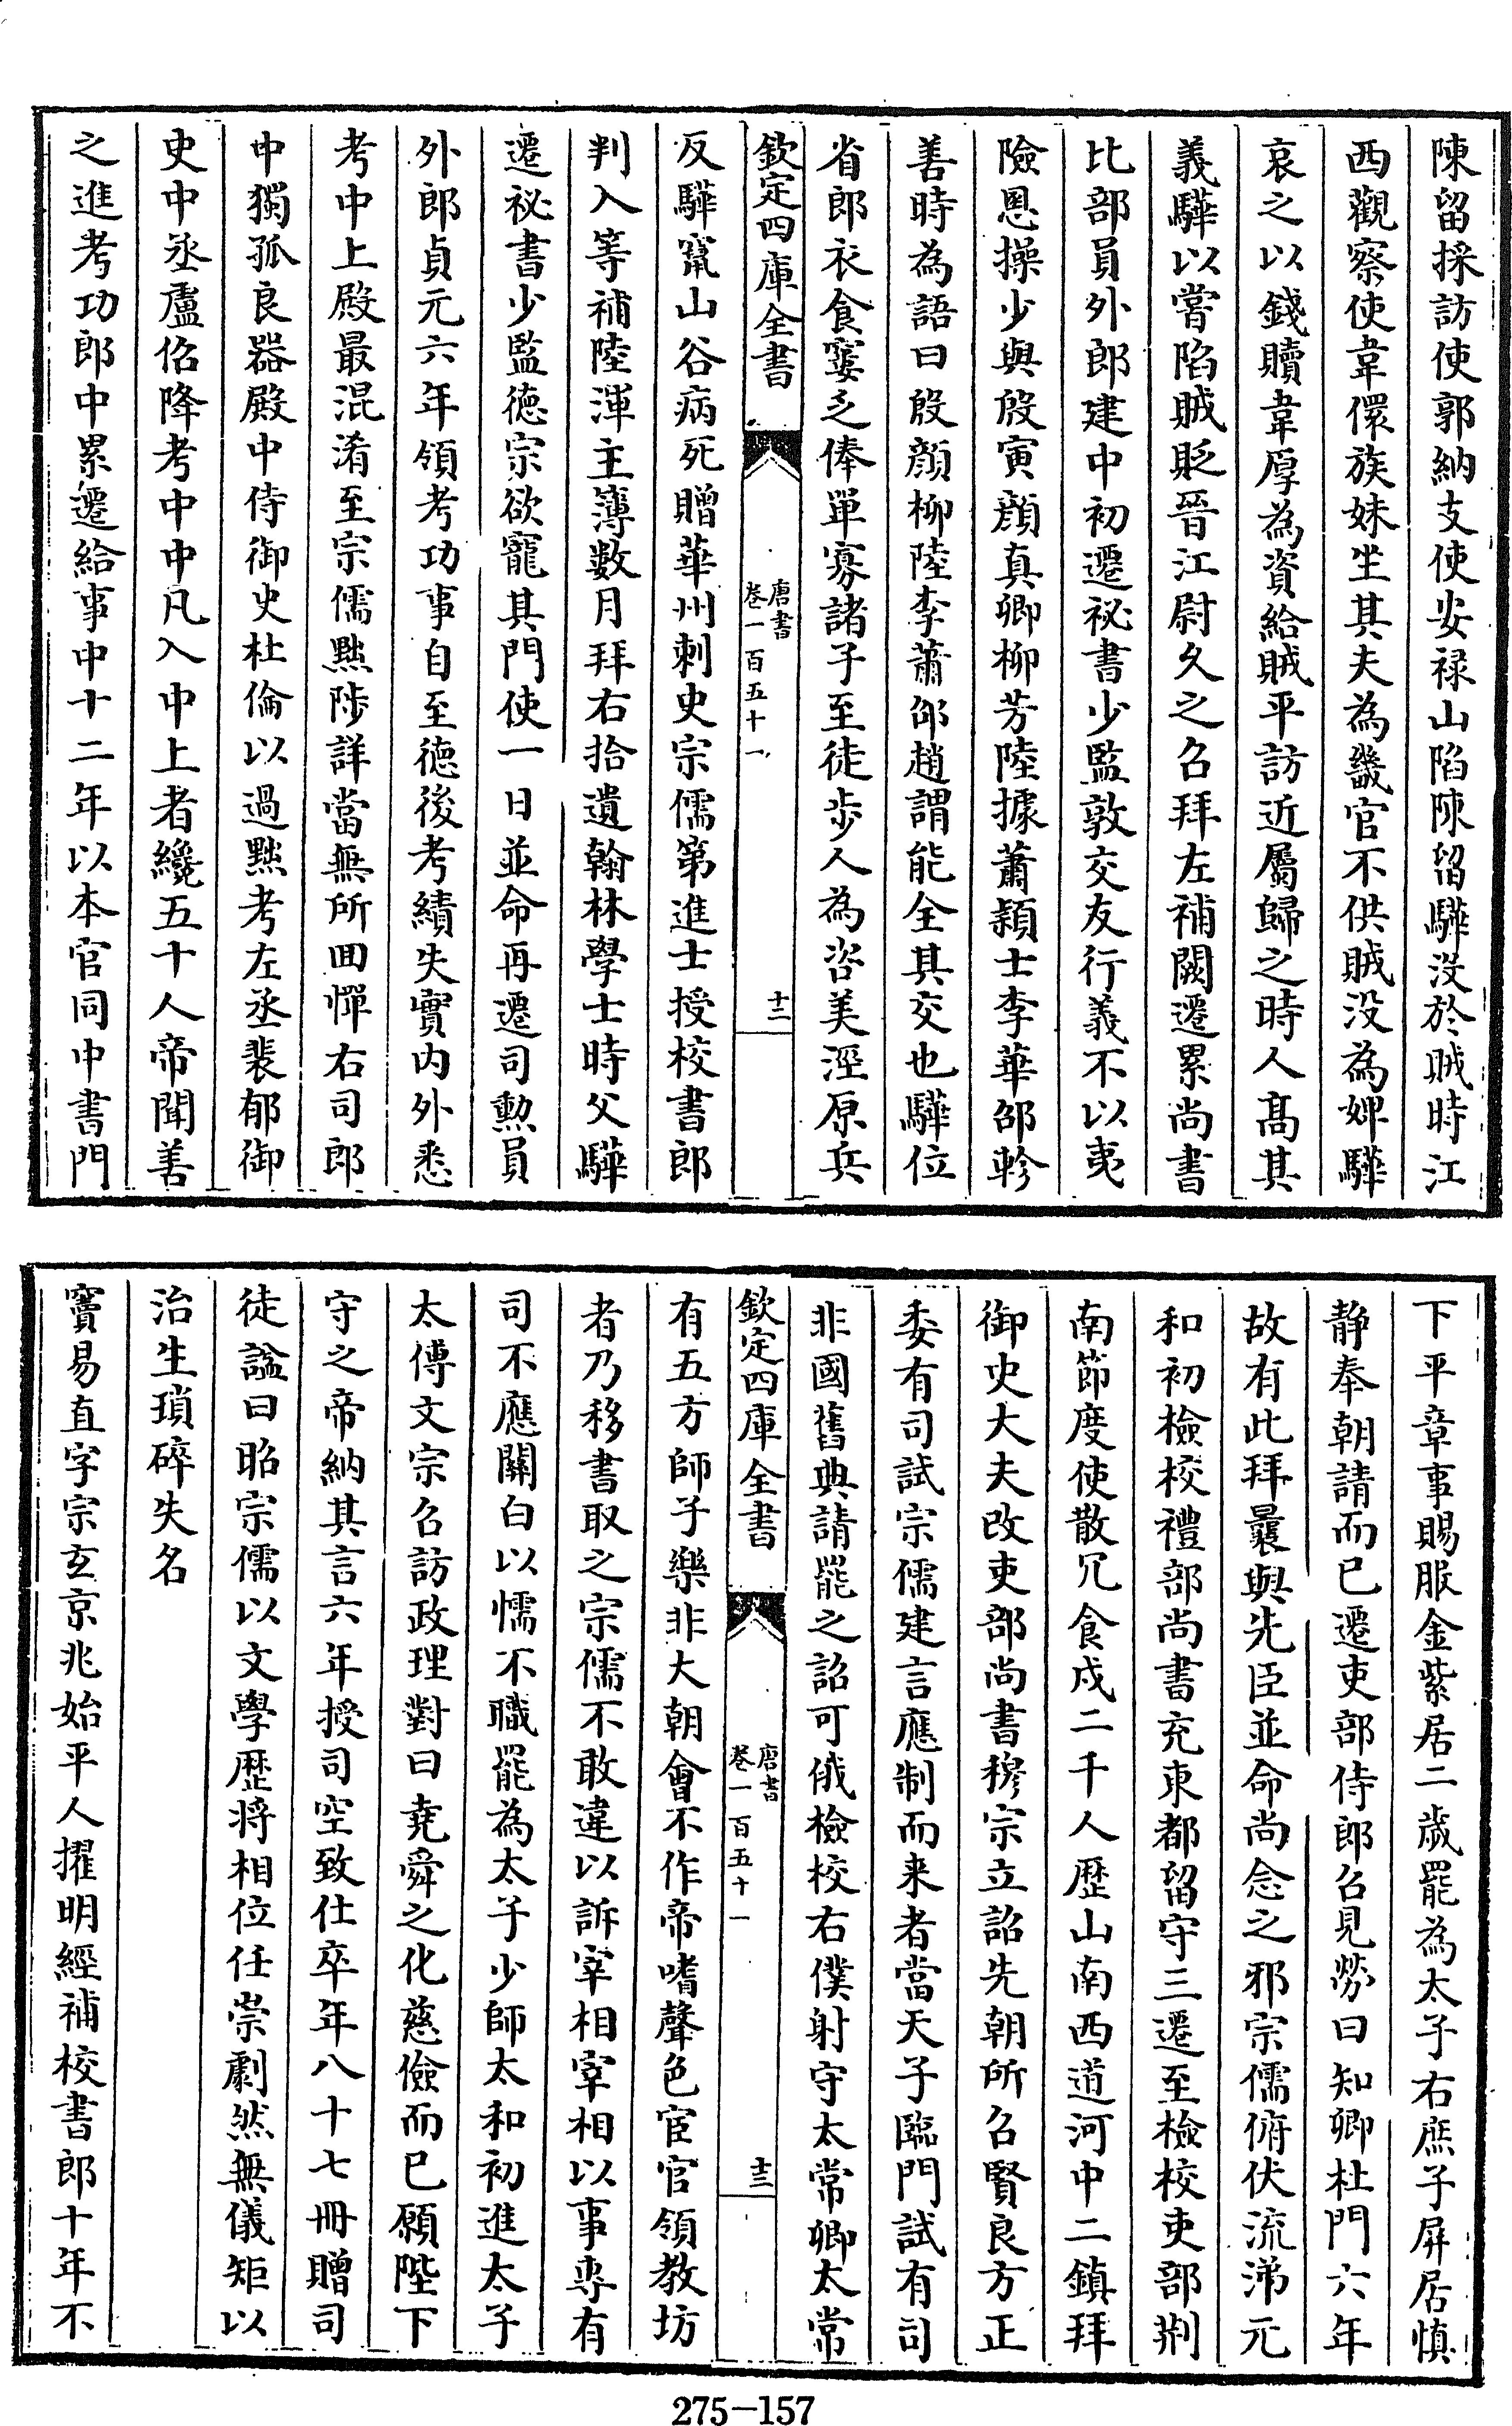 陳留採訪使郭納支使安禄山陷陳留驊没於賊時江
西觀察使韋儇族妹坐其夫為畿官不供賊没為婢驊
哀之以錢贖韋厚為資給賊平訪近屬歸之時人髙其
義驊以嘗陷賊貶晉江尉久之召拜左補闕遷累尚書
比部員外郎建中初遷祕書少監敦交友行義不以夷
險恩操少與殷寅顔真卿柳芳陸據蕭潁士李華邵軫
善時為語曰殷顔柳陸李蕭邵趙謂能全其交也驊位
省郎衣食窶乏俸單寡諸子至徒步人為咨美涇原兵
欽定四庫全書
唐書
卷一百五十一
十二
反驊竄山谷病死贈華州刺史宗儒第進士授校書郎
判入等補陸渾主簿數月拜右拾遺翰林學士時父驊
遷祕書少監德宗欲寵其門使一日並命再遷司勲員
外郎貞元六年領考功事自至德後考績失實内外悉
考中上殿最混淆至宗儒黜陟詳當無所回憚右司郎
中獨孤良器殿中侍御史杜倫以過黜考左丞裴郁御
史中丞盧佋降考中中凡入中上者纔五十人帝聞善
之進考功郎中累遷給事中十二年以本官同中書門
下平章事賜服金紫居二歲罷為太子右庶子屏居慎
静奉朝請而已遷吏部侍郎召見勞曰知卿杜門六年
故有此拜曩與先臣並命尚念之邪宗儒俯伏流涕元
和初檢校禮部尚書充東都留守三遷至檢校吏部荆
南節度使散冗食戍二千人歴山南西道河中二鎮拜
御史大夫改吏部尚書穆宗立詔先朝所召賢良方正
委有司試宗儒建言應制而来者當天子臨門試有司
非國舊典請罷之詔可俄檢校右僕射守太常卿太常
欽定四庫全書
唐書
卷一百五十一
十三
有五方師子樂非大朝會不作帝嗜聲色宦官領教坊
者乃移書取之宗儒不敢違以訴宰相宰相以事専有
司不應關白以懦不職罷為太子少師太和初進太子
太傅文宗召訪政理對曰堯舜之化慈儉而已願陛下
守之帝納其言六年授司空致仕卒年八十七冊贈司
徒諡曰昭宗儒以文學歴將相位任崇劇然無儀矩以
治生瑣碎失名
竇易直字宗玄京兆始平人擢明經補校書郎十年不
275-157